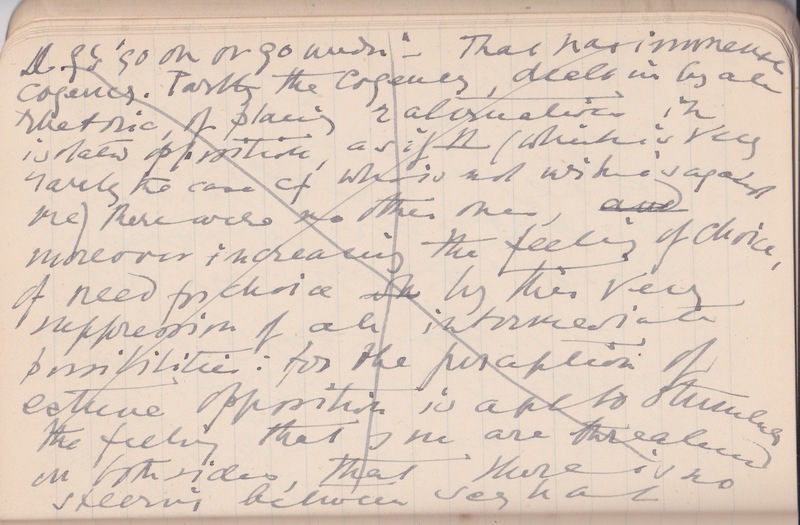 'go on or go under' – That has immense
cogency. Partly the cogency, dealt in by all
rhetoric, of placing 2 alternatives in
isolated opposition, as if (which is very
rarely the case cf who is not with is against
me) there were no other ones, and
moreover increasing the feeling of choice,
of need for choice by this very
suppression of all intermediate
possibilities: for the perception of
extreme opposition is apt to stimulate
the feeling that one are threatened
on both sides, that there is no
steering between say hal